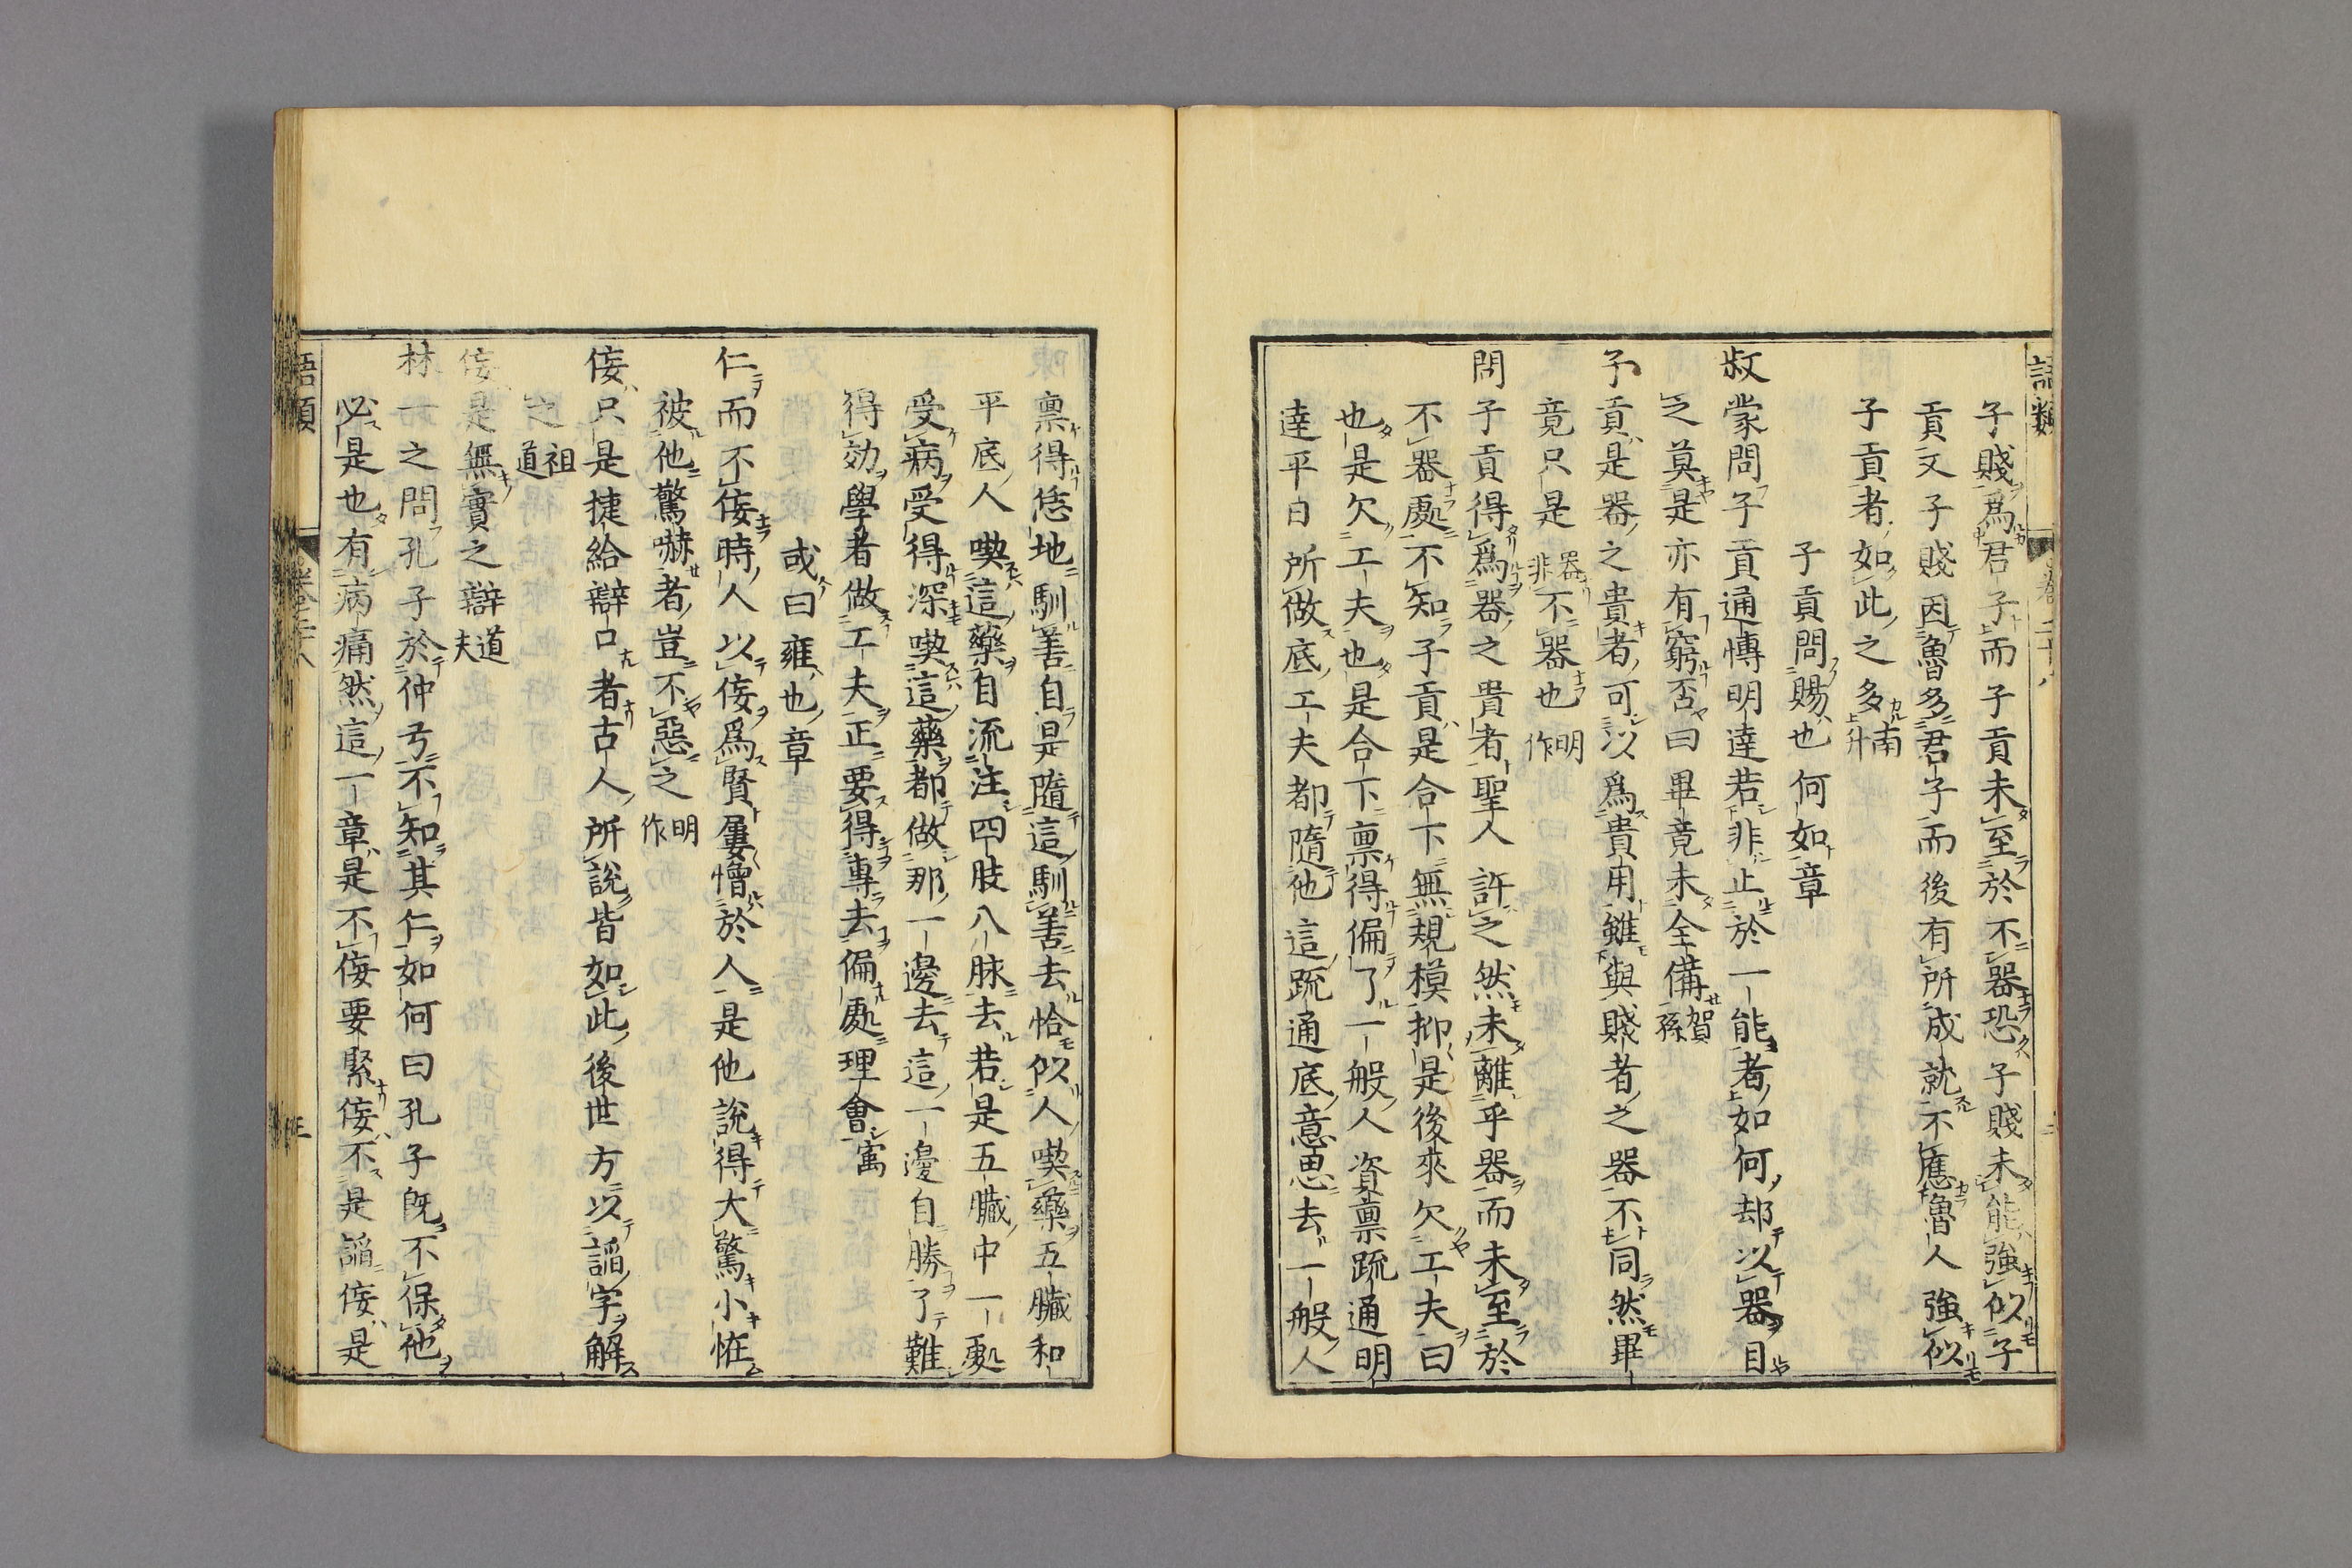 語類 卷二十八
子賤爲君子而子貢未至於不器恐子賤未能強似子
貢又子賤因魯多君子而後有所成就不應魯人強似
子貢者如此之多南升
子貢問賜也何如章
叔蒙問子貢通博明達若非止於一能者如何却以器目
之莫是亦有窮否曰畢竟未全備賀孫
子貢是器之貴者可以爲貴用雖與賤者之器不同然畢
竟只是器非不器也明作
問子貢得爲器之貴者聖人許之然未離乎器而未至於
不器處不知子貢是合下無規模抑是後來欠工夫曰
也是欠工夫也是合下稟得偏了一般人資稟疏通明
達平日所做底工夫都隨他這疏通底意思去一般人
稟得恁地馴善自是隨這馴善去恰似人喫藥五臟和
平底人喫這藥自流注四肢八脉去若是五臟中一處
受病受得深喫這藥都做那一邊去這一邊自勝了難
得効學者做工夫正要得專去偏處理會㝢
或曰雍也章
仁而不佞時人以佞爲賢屢憎於人是他說得大驚小恠
被他驚嚇者豈不惡之明作
佞只是捷給辯口者古人所說皆如此後世方以諂字解
之祖道
佞是無實之辯道夫
林一之問孔子於仲弓不知其仁如何曰孔子既不保他
必是也有病痛然這一章是不佞要緊佞不是諂佞是
語類 卷二十八 三